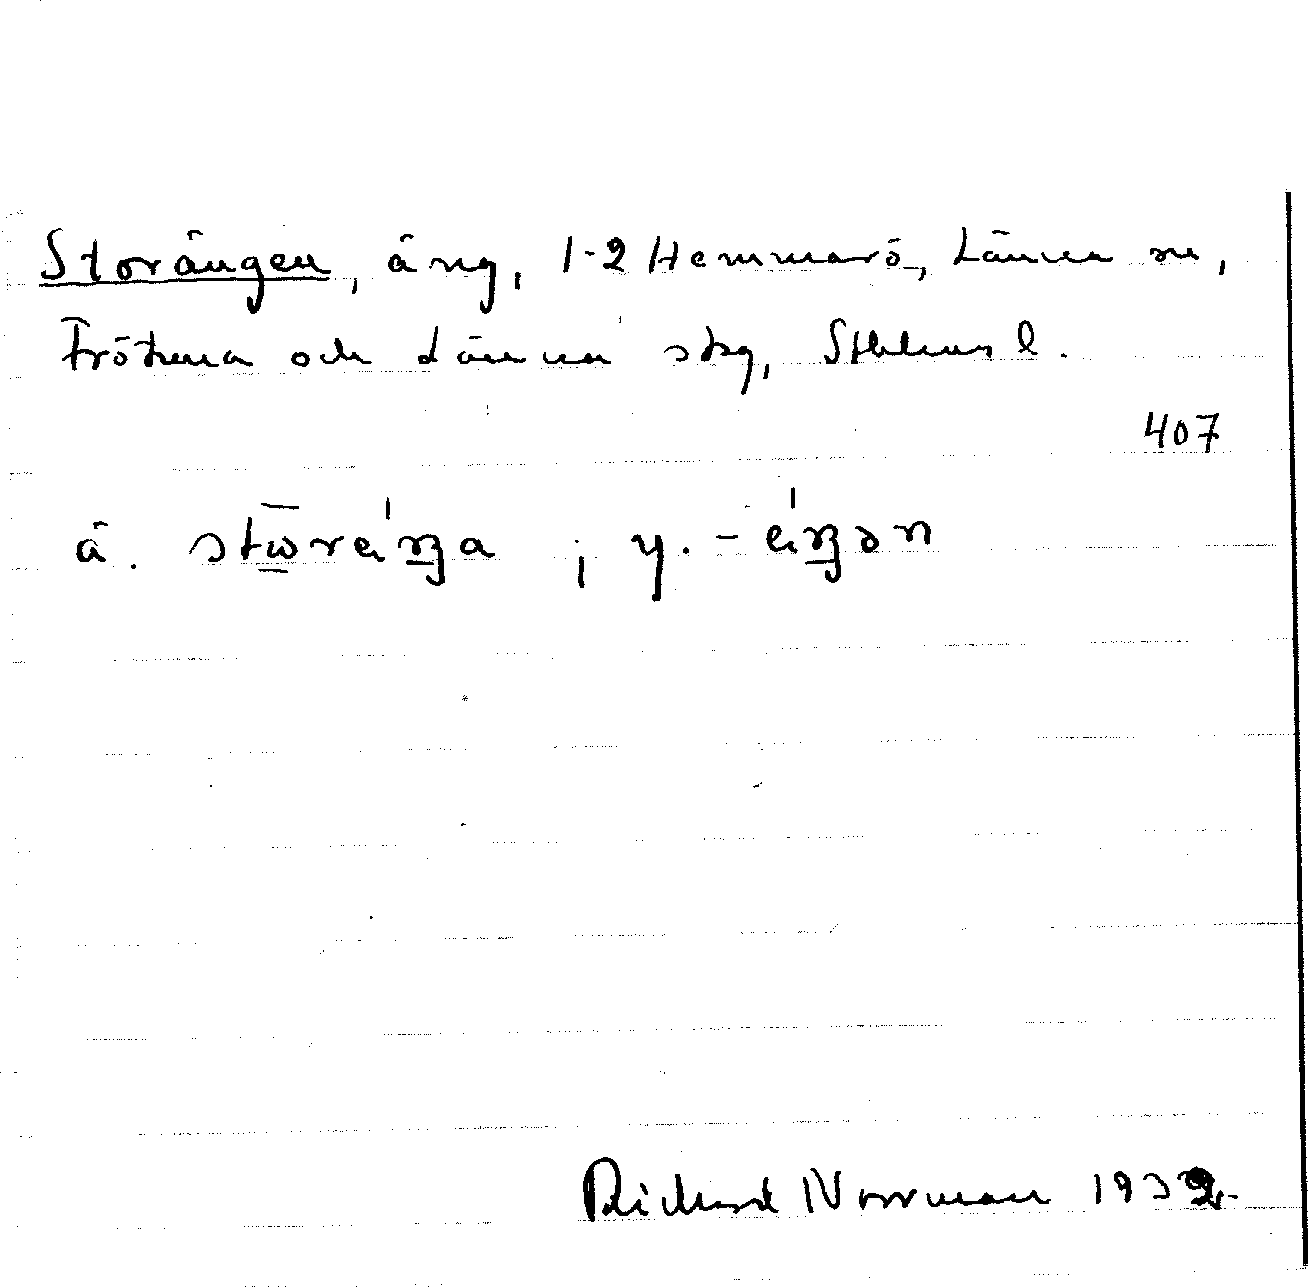 Storängen, äng, 1-2 Hemmarö, Länna sn,
Frötuna och Länna skg, Sthlms l.
407
ä. stω̄reŋa ; y. -eŋən
Richard Norrman 1932